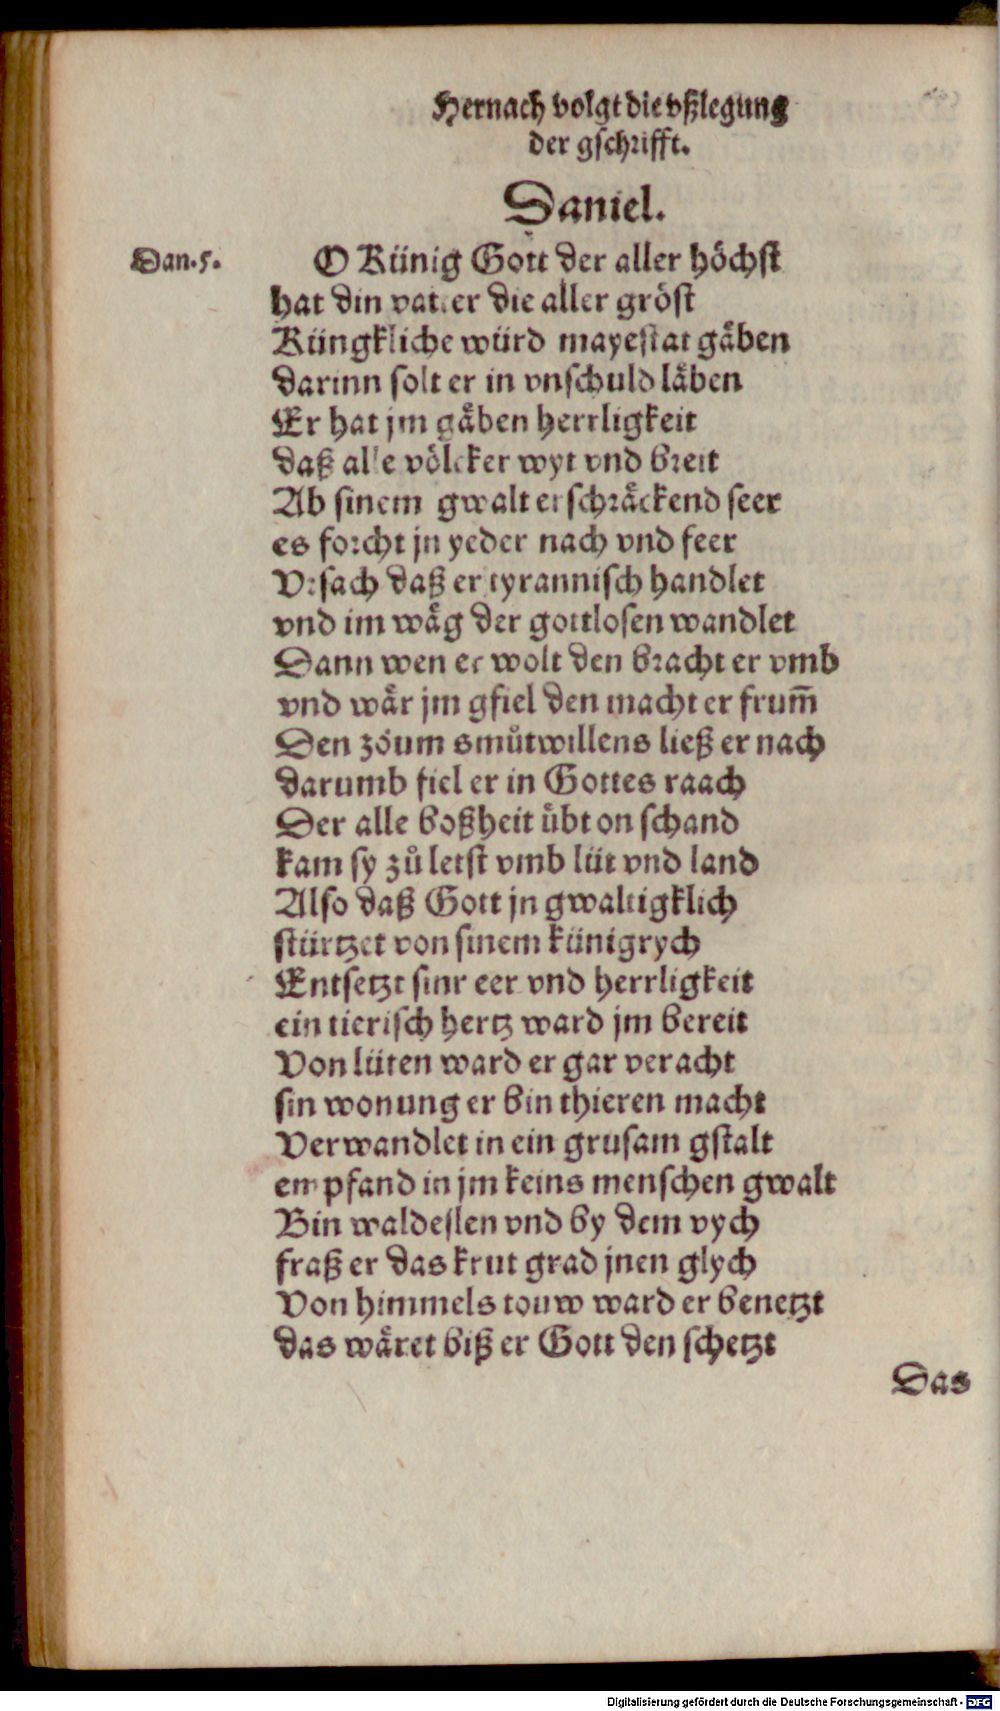 Hernach volgt die vßlegung
der gschrifft.
Daniel.
Dan.5.
O Künig Gott der aller höchst
hat din vatter die aller gröst
Küngkliche würd mayestat gäben
darinn solt er in vnschuld läben
Er hat jm gäben herrligkeit
daß alle völcker wyt vnd breit
Ab sinem gwalt erschräckend seer
es forcht jn yeder nach vnd feer
Vrsach daß er tyrannisch handlet
vnd im wäg der gottlosen wandlet
Dann wen er wolt den bracht er vmb
vnd wär jm gfiel den macht er frum̄
Den zöum smůtwillens ließ er nach
darumb fiel er in Gottes raach
Der alle boßheit übt on schand
kam sy zů letst vmb lüt vnd land
Also daß Gott jn gwaltigklich
stürtzet von sinem künigrych
Entsetzt sinr eer vnd herrligkeit
ein tierisch hertz ward jm bereit
Von lüten ward er gar veracht
sin wonung er bin thieren macht
Verwandlet in ein grusam gstalt
empfand in jm keins menschen gwalt
Bin waldeslen vnd by dem vych
fraß er das krut grad jnen glych
Von himmels touw ward er benetzt
das wäret biß er Gott den schetzt
Das
Digitalisierung gefördert durch die Deutsche Forschungsgemeinschaft - DFG